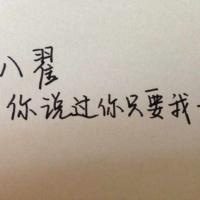 八翟
你说过你只要我